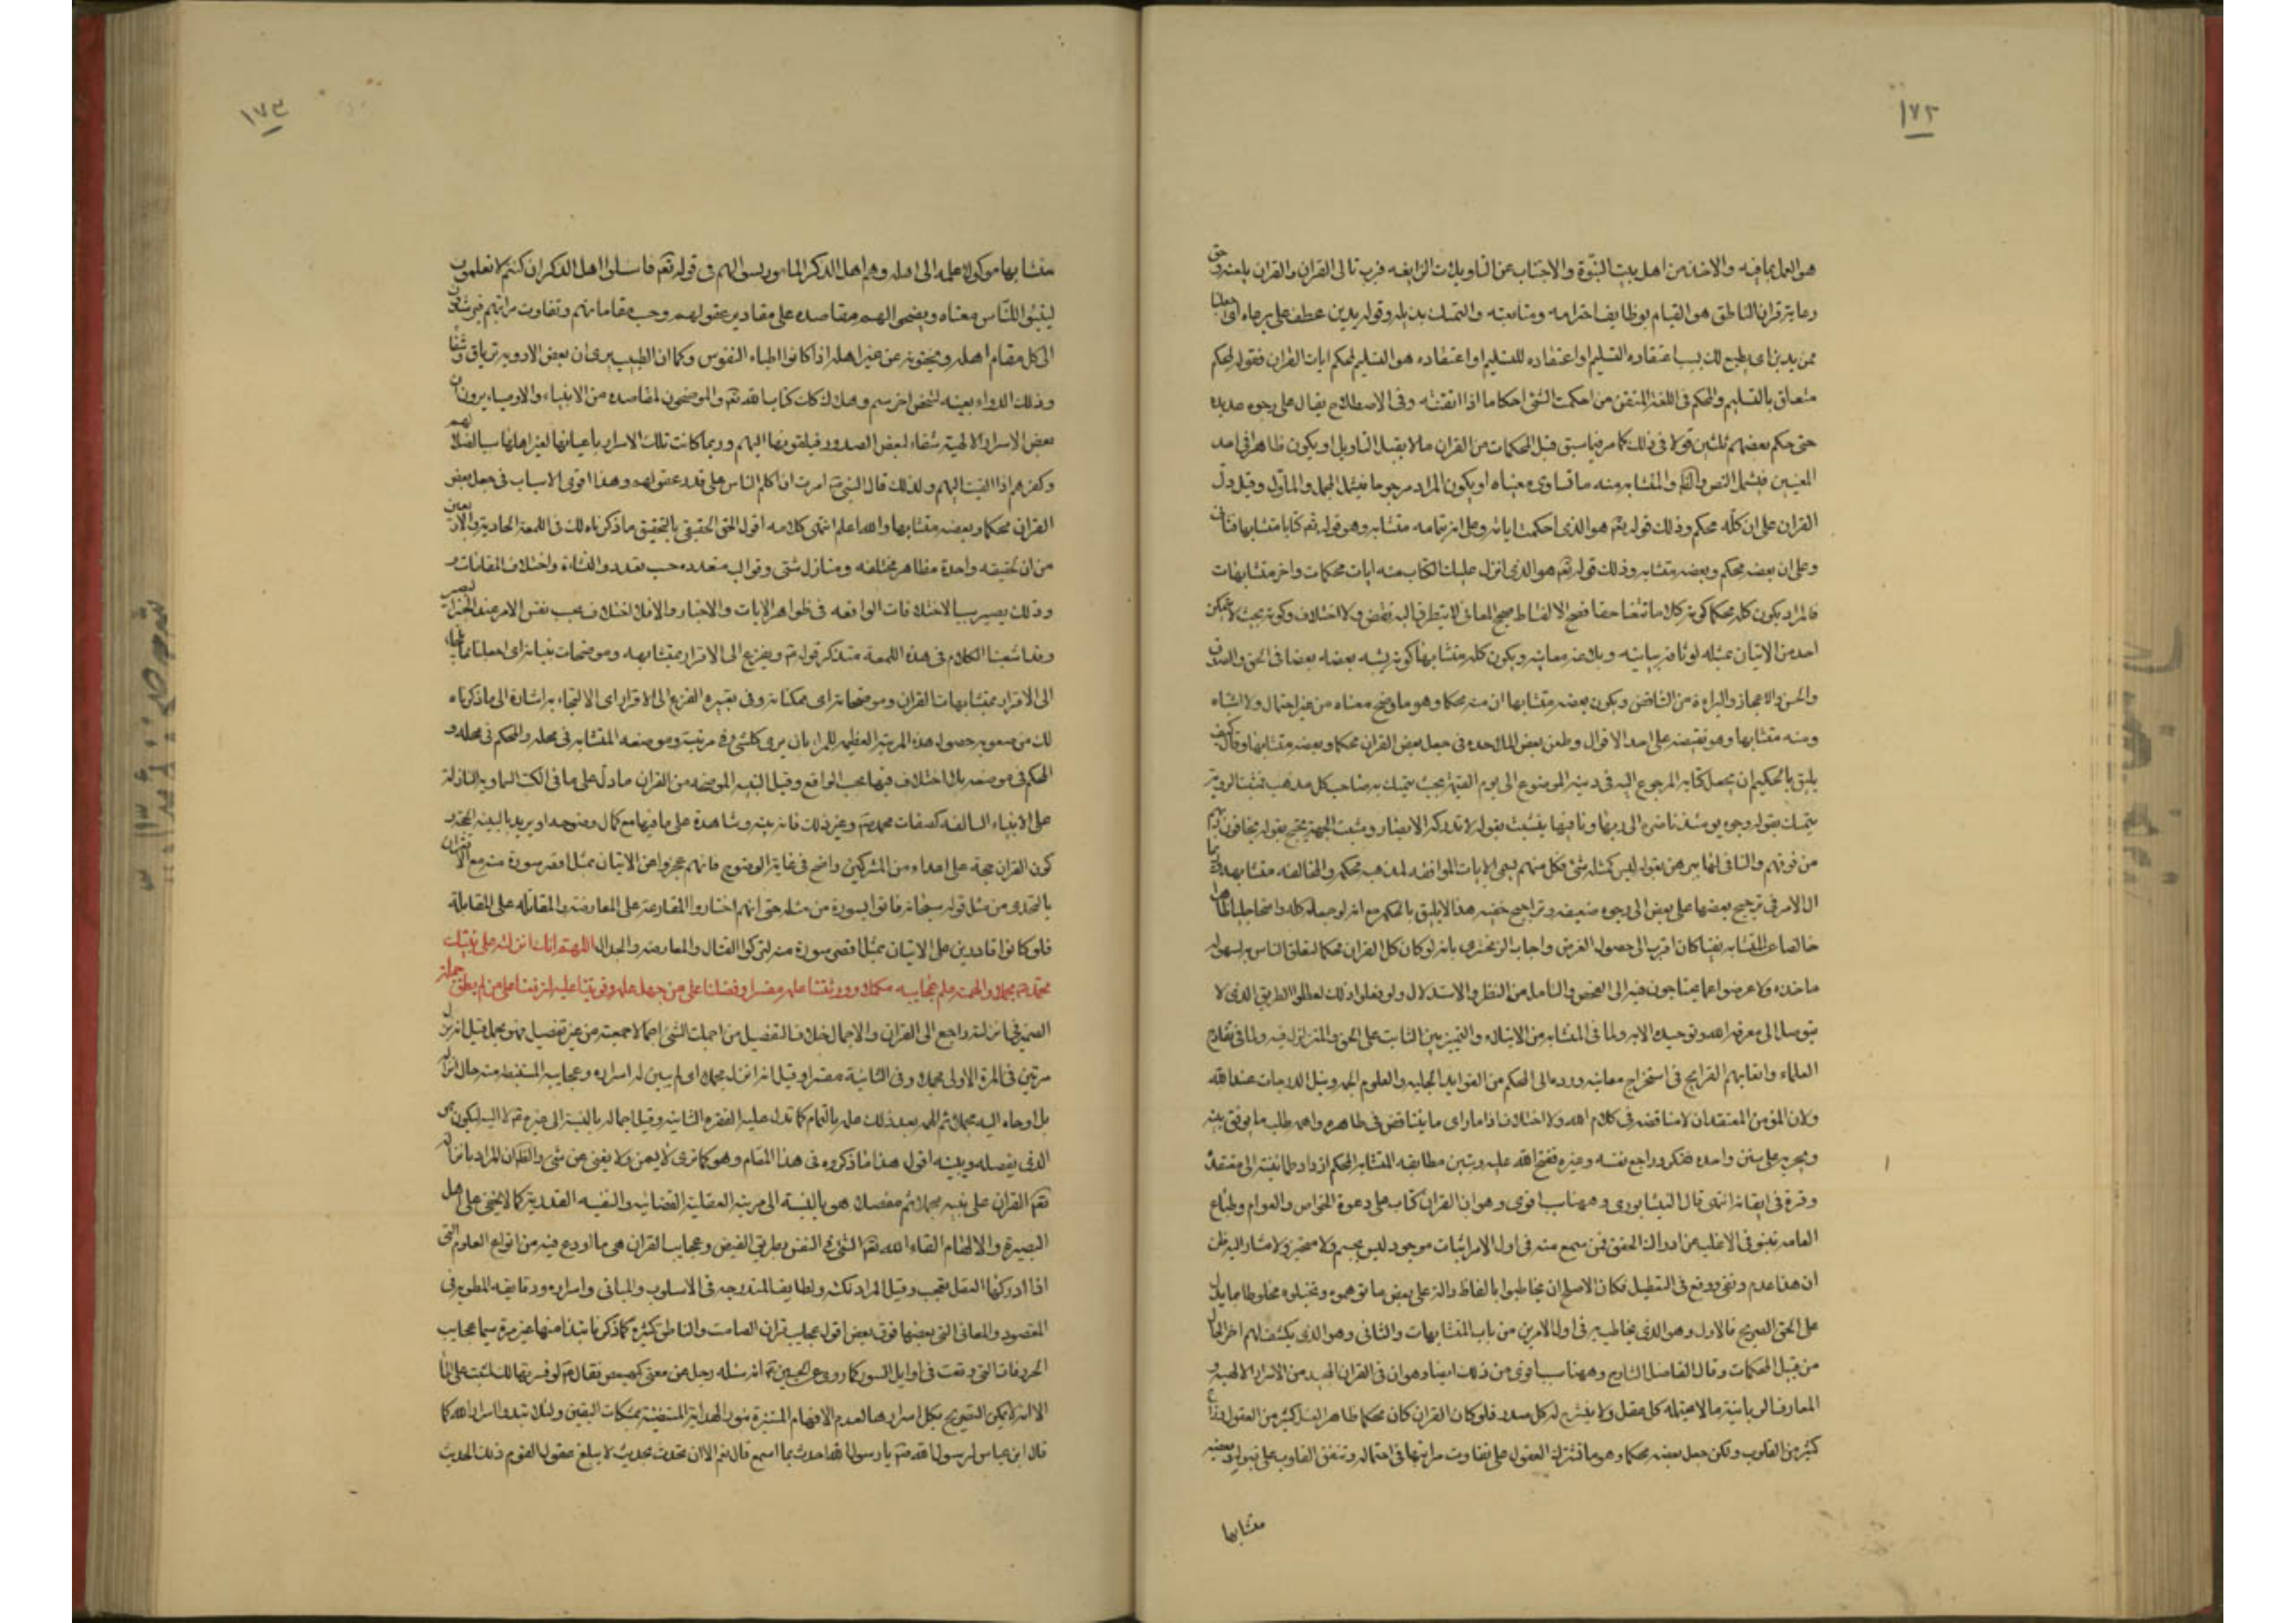 ١٧٢
هو العمل بما فيه والاخذ من اهل بيت النبوة والاجتناب عن التاويلات الزايغه فرب تالى القران والقران يلعنه وحق
رعاية قران الناطق هو القيام بوظايف احترامه ومتابعته والتمسك بذيله وقوله يدين عطف على يرعاه اى اجعلنا
ممن يدين اى يطيع لك بسبب اعتقاده التسليم او اعتقاده للتسليم او اعتقاده هو التسليم لمحكم ايات القران فقوله لمحكم
متعلق بالتسليم والمحكم فى اللغة المتقن من احكمت الشئ احكاما اذا اتقنته وفى الاصطلاح يقال على وجوه عديده
حتى حكم بعضهم ثلثين قولا فى ذلك كما مر فيما سبق قيل المحكمات من القران ما لا يقبل التاويل او يكون ظاهرا فى احد
المعنيين فيشمل النص والظ والمتشابه منه ما تساوى معنياه او يكون المراد مرجوحا فيشمل المجمل والماول وقيل دل
القران على ان كله محكم وذلك قوله تعم هو الذى احكمت اياته وعلى انه بتمامه متشابه وهو قوله تعم كتابا متشابها مثانى
وعلى ان بعضه محكم وبعضه متشابه وذلك قوله تعم هو الذى انزل عليك الكتاب منه ايات محكمات واخر متشابهات
فالمراد بكون كله محكما كونه كلاما متقنا حقا فصيح الالفاظ صحيح المعانى لا يتطرق اليه نقض ولا اختلاف وكونه بحيث لا يتمكن
احد من الاتيان بمثله لوثاقة بيانه وبلاغة معانيه وبكون كله متشابها كونه يشبه بعضه بعضا فى الحق والصدق
والحسن والاعجاز والبراءة من التناقض وبكون بعضه متشابها ان منه محكما وهو ما وضح معناه من غير احتمال ولا اشتباه
ومنه متشابها وهو نقيضه على احد الاقوال وطعن بعض الملاحده فى جعل بعض القران محكما وبعضه متشابها وقال كيف
يليق بالحكيم ان يجعل كتابه المرجوع اليه فى دينه الموضوع الى يوم القيمة بحيث يتمسك به صاحب كل مذهب فمثبت الرؤية
يتمسك بقوله وجوه يومئذ ناضرة الى ربها ونافيها يتشبث بقوله لا تدركه الابصار ومثبت الجهة يحتج بقوله يخافون ربهم
من فوقهم والنافى لها يبرهن بقوله ليس كمثله شئ فكل منهم يسمى الايات الموافقه لمذهبه محكمه والمخالفه متشابهه وربما
ال الامر فى ترجيح بعضها على بعض الى وجوه ضعيفه وتراجيح خفيه هذا لا يليق بالحكمة مع انه لو جعله كله واضحا جليا ظاهرا
خالصا عن المتشابه نقيا كان اقرب الى حصول الغرض واجاب الزمخشرى بانه لو كان كل القران محكما لتعلق الناس به لسهولة
ماخذه ولاعرضوا عما يحتاجون فيه الى الفحص والتامل من النظر والاستدلال ولو فعلوا ذلك لعطلوا الطريق الذى لا
يتوصل الى معرفة الله وتوحيده الا به ولما فى المتشابه من الابتلاء والتميز بين الثابت على الحق والمتزلزل فيه ولما فى تقادح
العلماء واتعابهم القرايح فى استخراج معانيه ورده الى المحكم من الفوايد الجليلة والعلوم الجمة ونيل الدرجات عند الله
ولان المؤمن المعتقد ان لا مناقضه فى كلام الله ولا اختلاف اذا راى ما يتناقض فى ظاهره واهمه طلب ما يوفق بينه
ويجريه على سنن واحده ففكر وراجع نفسه وغيره ففتح الله عليه وتبين مطابقه المتشابه المحكم ازداد طمانينة الى معتقده
وقوة فى ايقانه انتهى قال النيشابورى وههنا سبب اقوى وهو ان القران كتاب على دعوة الخواص والعوام وطباع
العامه تنبو فى الاغلب عن ادراك الحقق فمن سمع منه فى اول الامر اثبات موجود ليس بجسم ولا متحيز ولا مشار اليه ظن
ان هذا عدم ونفى ووقع فى التعطيل فكان الاصلح ان يخاطبوا بالفاظ دالة على بعض ما توهموه وتخيلوه مخلوطا بما يدل
على الحق الصريح فالاول وهو الذى يخاطب به فى اول الامر من باب المتشابهات والثانى وهو الذى يكشف لهم اخر الحال
من قبيل المحكمات وقال الفاضل الشارح وههنا سبب اقوى من ذلك ايضا وهو ان فى القران المجيد من الاسرار الالهية و
المعارف الربانية ما لا يحتمله كل عقل ولا ينشرح له كل صدر فلو كان القران كان محكما ظاهرا لضل كثير من العقول وزاغ
كثير من القلوب ولكن جعل بعضه محكما وهو ما تشترك العقول على تفاوت مراتبها فى احتماله وتتفق القلوب على قبوله وبعضه
متشابها
١٧٣
متشابها موكولا علمه الى اهله وهم اهل الذكر المامور بسوالهم فى قوله تعم فاسئلوا اهل الذكر ان كنتم لا تعلمون
ليبينوا للناس معناه ويفضى اليهم مقاصده على مقادير عقولهم وحسب مقاماتهم وتفاوت مراتبهم فيرشدون
الى كل مقام اهله ويخفونه عن غير اهله اذ كانوا اطباء النفوس وكما ان الطبيب يرى ان بعض الادويه ترياق وشفا
وذلك الدواء بعينه لشخص اخر سم وهلاك كان كتاب الله تعم والموضحون لمقاصده من الانبياء والاوصياء يرون ان
بعض الاسرار الالهية شفاء لبعض الصدور فيلقونها اليهم وربما كانت تلك الاسرار باعيانها لغير اهلها سبب لضلالهم
وكفرهم اذا القيت اليهم ولذلك قال النبى ص امرت ان اكلم الناس على قدر عقولهم وهذا اقوى الاسباب فى جعل بعض
القران محكما وبعضه متشابها والله اعلم انتهى كلامه اقول الحق الحقيقى بالتحقيق ما ذكرناه لك فى اللمعة الحادية والاربعين
من ان لحقيقه واحدة مظاهر مختلفه ومنازل شتى وقوالب متعدده حسب تعدد النشاة واختلاف المقامات و
وذلك يصير سببا لاختلافات الواقعه فى ظواهر الايات والاخبار والا فلا اختلاف بحسب نفس الامر عند
وقد اشبعنا الكلام فى هذه اللمعة متذكر قوله ع ويفزع الى الاقرار بمتشابهه وموضحات بيناته اى اجعلنا
الى الاقرار بمتشابهات القران وموضحاته اى محكماته وفى تعبيره الفزع الى الاقرار اى الالتجاء به اشارة الى ما ذكرناه
لك من صعوبه حصول هذه المرتبة العظيمه للمرء بان يرى كل شئ فى مرتبته وموضعه المتشابه فى محله والمحكم فى محله و
المحكم فى موضعه بلا اختلاف فيها بحسب الواقع وقيل البينه الموضحه من القران ما دل على ما فى الكتب السماويه النازلة
على الانبياء السالفه كصفات محمد ص وغير ذلك فانه بينه وشاهدة على ما فيها مع كمال وضوحه او يريد بالبينه المتحدى
كون القران حجة على اعداءه من المشركين واضح فى غاية الوضوح فانهم عجزوا عن الاتيان بمثل اقصر سورة منه مع الاقتران
بالتحدى من مثل قوله سبحانه فاتوا بسورة من مثله حتى انهم اختاروا المقارعة على المعارضه والمقاتله على المقابلة
فلو كانوا قادرين على الاتيان بمثل اقصر سورة منه لتركوا القتال والمعارضه والجدال اللهم انك انزلته على نبيك
محمد ص مجملا والهمته علم عجايبه مكملا وورثتنا علمه مفسرا وفضلتنا على من جهل علمه وقويتنا عليه لترفعنا على من لم يطق حمله
الضمير فى انزلته راجع الى القران والاجمال خلاف التفصيل من اجملت الشئ اجمالا جمعته من غير تفصيل فهو مجمل قيل انزل
مرتين فى المرة الاولى مجملا وفى الثانية مفسرا وقيل انه انزله مجملا اى لم يبين له اسراره وعجايبه المستنبطه منه حال انزاله
بل اوحاه اليه مجملا ثم الهمه بعد ذلك علمه بالتمام كما تدل عليه الفقره الثانيه وقيل اجماله بالنسبة الى غيره ص لا اليه ليكون هو
الذى يفصله ويبينه اقول هذا ما ذكروه فى هذا المقام وهو كما ترى لا يسمن ولا يغنى من شئ والظ ان المراد بانزاله
تعم القران على نبيه مجملا ثم مفصلا هو بالنسبة الى مرتبته العقلية القضائية والنفسيه القدرية كما لا يخفى على اهل
البصيرة والالهام القاء الله تعم الشئ فى النفس بطريق الفيض وعجايب القران هى ما اودع فيه من انواع العلوم التى
اذا ادركها العقل تعجب وقيل المراد نكته ولطايفه المندرجه فى الاسلوب والمبانى واسراره ودقايقه المطويه فى
المقصود والمعانى التى بعضها فوق بعض اقول عجايب قران الصامت والناطق كثيرة كما ذكرنا نبذا منها غير مرة سيما عجايب
الحروفات التى وقعت فى اوايل السور كما روى عن الحسين ع انه سئله رجل عن معنى كهيعص فقال ع لو فسرتها لك لمشيت على الما
الا انه لا يمكن التصريح بكل اسرارها لعدم الافهام المستنيرة بنور الهداية المستضيئة بمشكات اليقين ولئلا تبدوا اسرار الله كما
قال ابن عباس لرسول الله ص يا رسول الله احدث بما اسمع قال نعم الا ان تحدث بحديث لا يبلغ عقول القوم ذلك الحديث